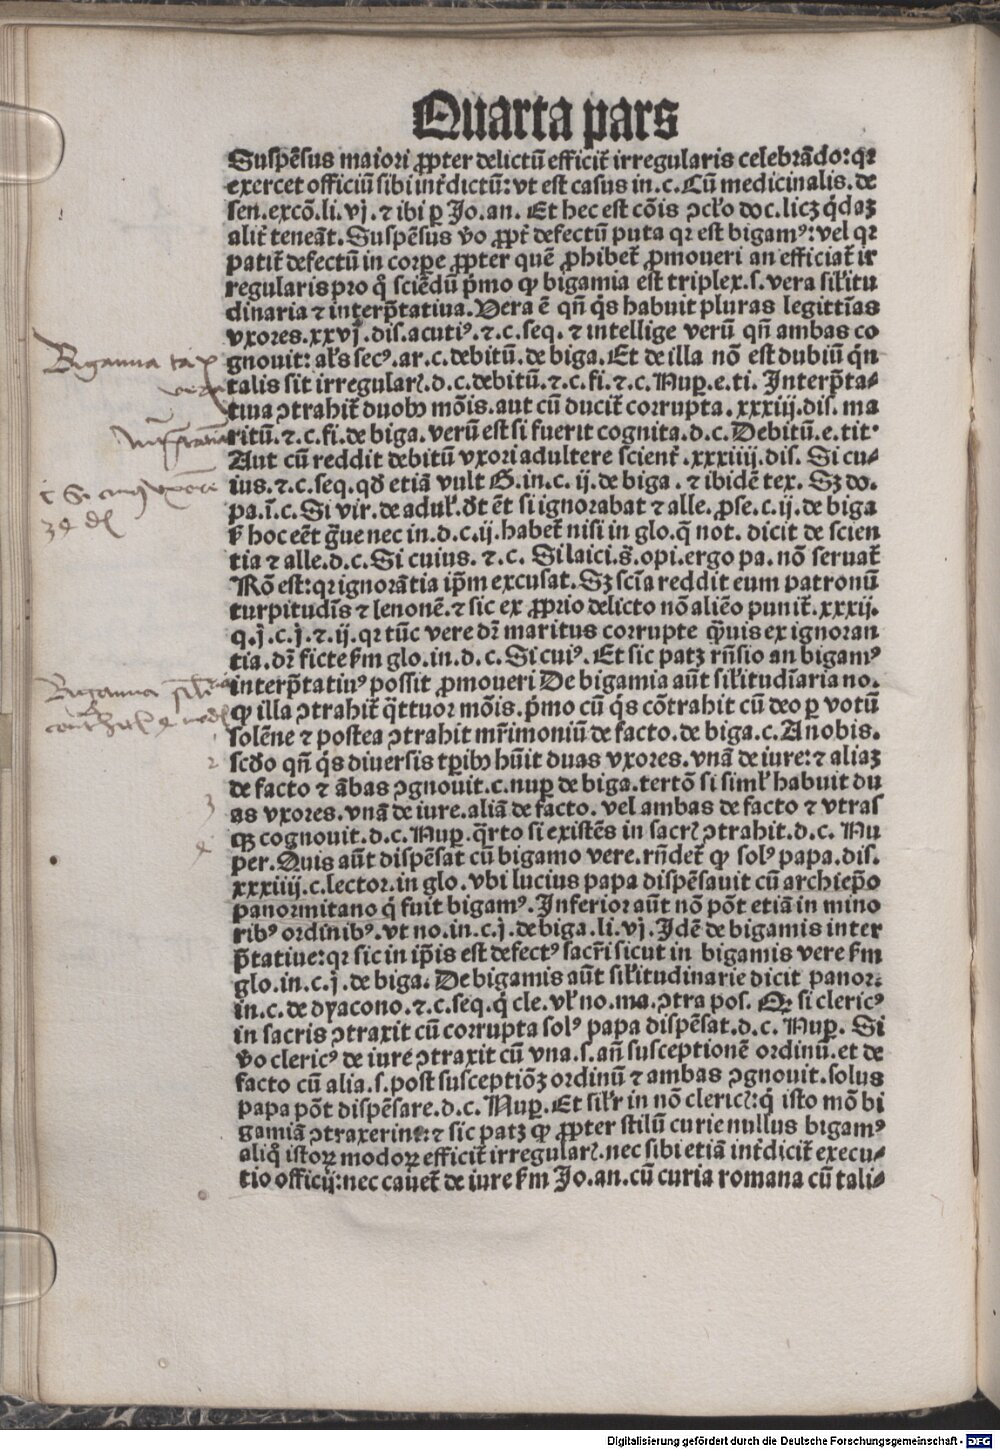 Quarta pars
Suspēsus maiori ꝓpter delictū efficit̄ irregularis celebrādo: qꝛ
exercet officiū sibi int̄dictū: vt est casus in .c. Cū medicinalis. de
sen. excō. li. vj. ⁊ ibi ꝑ Jo. an. Et hec est cōis ↄcło doc. licꝫ q̄daꝫ
alit̄ teneāt. Suspēsus v̄o ꝓpt̄ defectū puta qꝛ est bigamꝰ: vel qꝛ
patit̄ defectū in corꝑe ꝓpter quē ꝓhibet̄ ꝓmoueri an efficiat̄ ir
regularis pro qͦ sciēdū p̄mo ꝙ bigamia est triplex .s. vera siłitu
dinaria ⁊ interp̄tatiua. Vera ē qn̄ q̄s habuit pluras legittīas
vxores. xxvj. dis. acutiꝰ. ⁊ .c. seq. ⁊ intellige verū qn̄ ambas co
gnouit: ał̄s secꝰ. ar. c. debitū. de biga. Et de illa nō est dubiū q̄n
talis sit irregularꝭ. d. c. debitū. ⁊ .c. fi. ⁊ .c. Nuꝑ. e. ti. Interp̄ta-
tiua ↄtrahit̄ duobꝰ mōis. aut cū ducit̄ corrupta. xxxiij. dis. ma
ritū. ⁊ .c. fi. de biga. verū est si fuerit cognita. d. c. Debitū. e. tit.
Aut cū reddit debitū vxori adultere scient̄. xxxiiij. dis. Si cu-
ius. ⁊ .c. seq. qd̄ etiā vult G. in .c. ij. de biga. ⁊ ibidē tex. Sꝫ do.
pa. ī .c. Si vir. de aduł. d̄t ēt si ignorabat ⁊ alle. ꝓse. c. ij. de biga
hoc eēt g̈ue nec in .d. c. ij. habet̄ nisi in glo. q̄ not. dicit de scien
tia ⁊ alle. d. c. Si cuius. ⁊ .c. Si laici. s̄. opi. ergo pa. nō seruat̄
Rō est: qꝛ ignorātia ip̄m excusat. Sꝫ scīa reddit eum patronū
turpitudīs ⁊ lenonē. ⁊ sic ex ꝓprio delicto nō aliēo punit̄. xxxij.
q. j. c. j. ⁊ .ij. qꝛ tūc vere dr̄ maritus corrupte q̄uis ex ignoran
tia. dr̄ ficte ẜm glo. in .d. c. Si cuiꝰ. Et sic patꝫ rn̄sio an bigamꝰ
interp̄tatiuꝰ possit ꝓmoueri De bigamia aūt siłitudīaria no.
ꝙ illa ↄtrahit̄ q̈ttuor mōis. p̄mo cū q̄s cōtrahit cū deo ꝑ votū
solēne ⁊ postea ↄtrahit mr̄imoniū de facto. de biga. c. A nobis.
scd̄o qn̄ q̄s diuersis tꝑibꝰ hūit duas vxores. vnā de iure: ⁊ aliaꝫ
de facto ⁊ ābas ↄgnouit. c. nuꝑ de biga. tertō si simł habuit du
as vxores. vnā de iure. aliā de facto. vel ambas de facto ⁊ vtras
qꝫ cognouit. d. c. Nuꝑ. q̈rto si existēs in sacrꝭ ↄtrahit. d. c. Nu
per. Quis aūt dispēsat cū bigamo vere. rn̄det̄ ꝙ solꝰ papa. dis.
xxxiiij. c. lector. in glo. vbi lucius papa dispēsauit cū archiep̄o
panormitano q̄ fuit bigamꝰ. Inferior aūt nō pōt etiā in mino
ribꝰ ordinibꝰ. vt no. in .c. j. de biga. li. vj. Idē de bigamis inter
p̄tatiue: qꝛ sic in ip̄is est defectꝰ sacr̄i sicut in bigamis vere ẜm
glo. in .c. j. de biga. De bigamis aūt siłitudinarie dicit panor.
in .c. de dyacono. ⁊ .c. seq. q̄ cle. vł no. ma. ↄtra pos. Qꝛ si clericꝰ
in sacris ↄtraxit cū corrupta solꝰ papa dispēsat. d. c. Nuꝑ. Si
v̄o clericꝰ de iure ↄtraxit cū vna .s. an̄ susceptionē ordinū. et de
facto cū alia .s. post susceptiōꝫ ordinū ⁊ ambas ↄgnouit. solus
papa pōt dispēsare. d. c. Nuꝑ. Et siłr in nō clericꝭ: q̄ isto mō bi
gamiā ↄtraxerint: ⁊ sic patꝫ ꝙ ꝓpter stilū curie nullus bigamꝰ
aliqͦ istoꝝ modoꝝ efficit̄ irregularꝭ. nec sibi etiā int̄dicit̄ execu-
tio officij: nec cauet̄ de iure ẜm Jo. an. cū curia romana cū tali-
Bigamia
vera
Bigamia
2
3
4
Digitalisierung gefördert durch die Deutsche Forschungsgemeinschaft - DFG